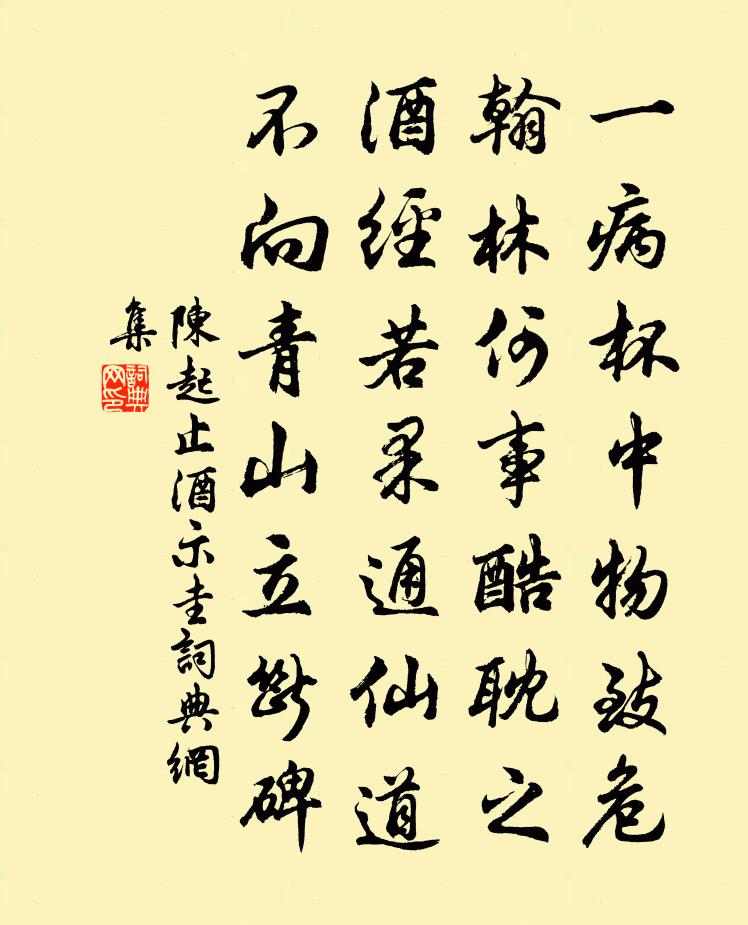 一病杯中物致危
翰林何事酷耽之
酒經若果通仙道
不向青山立斷碑
陳起止酒示圭詞典網
集
詞典网印